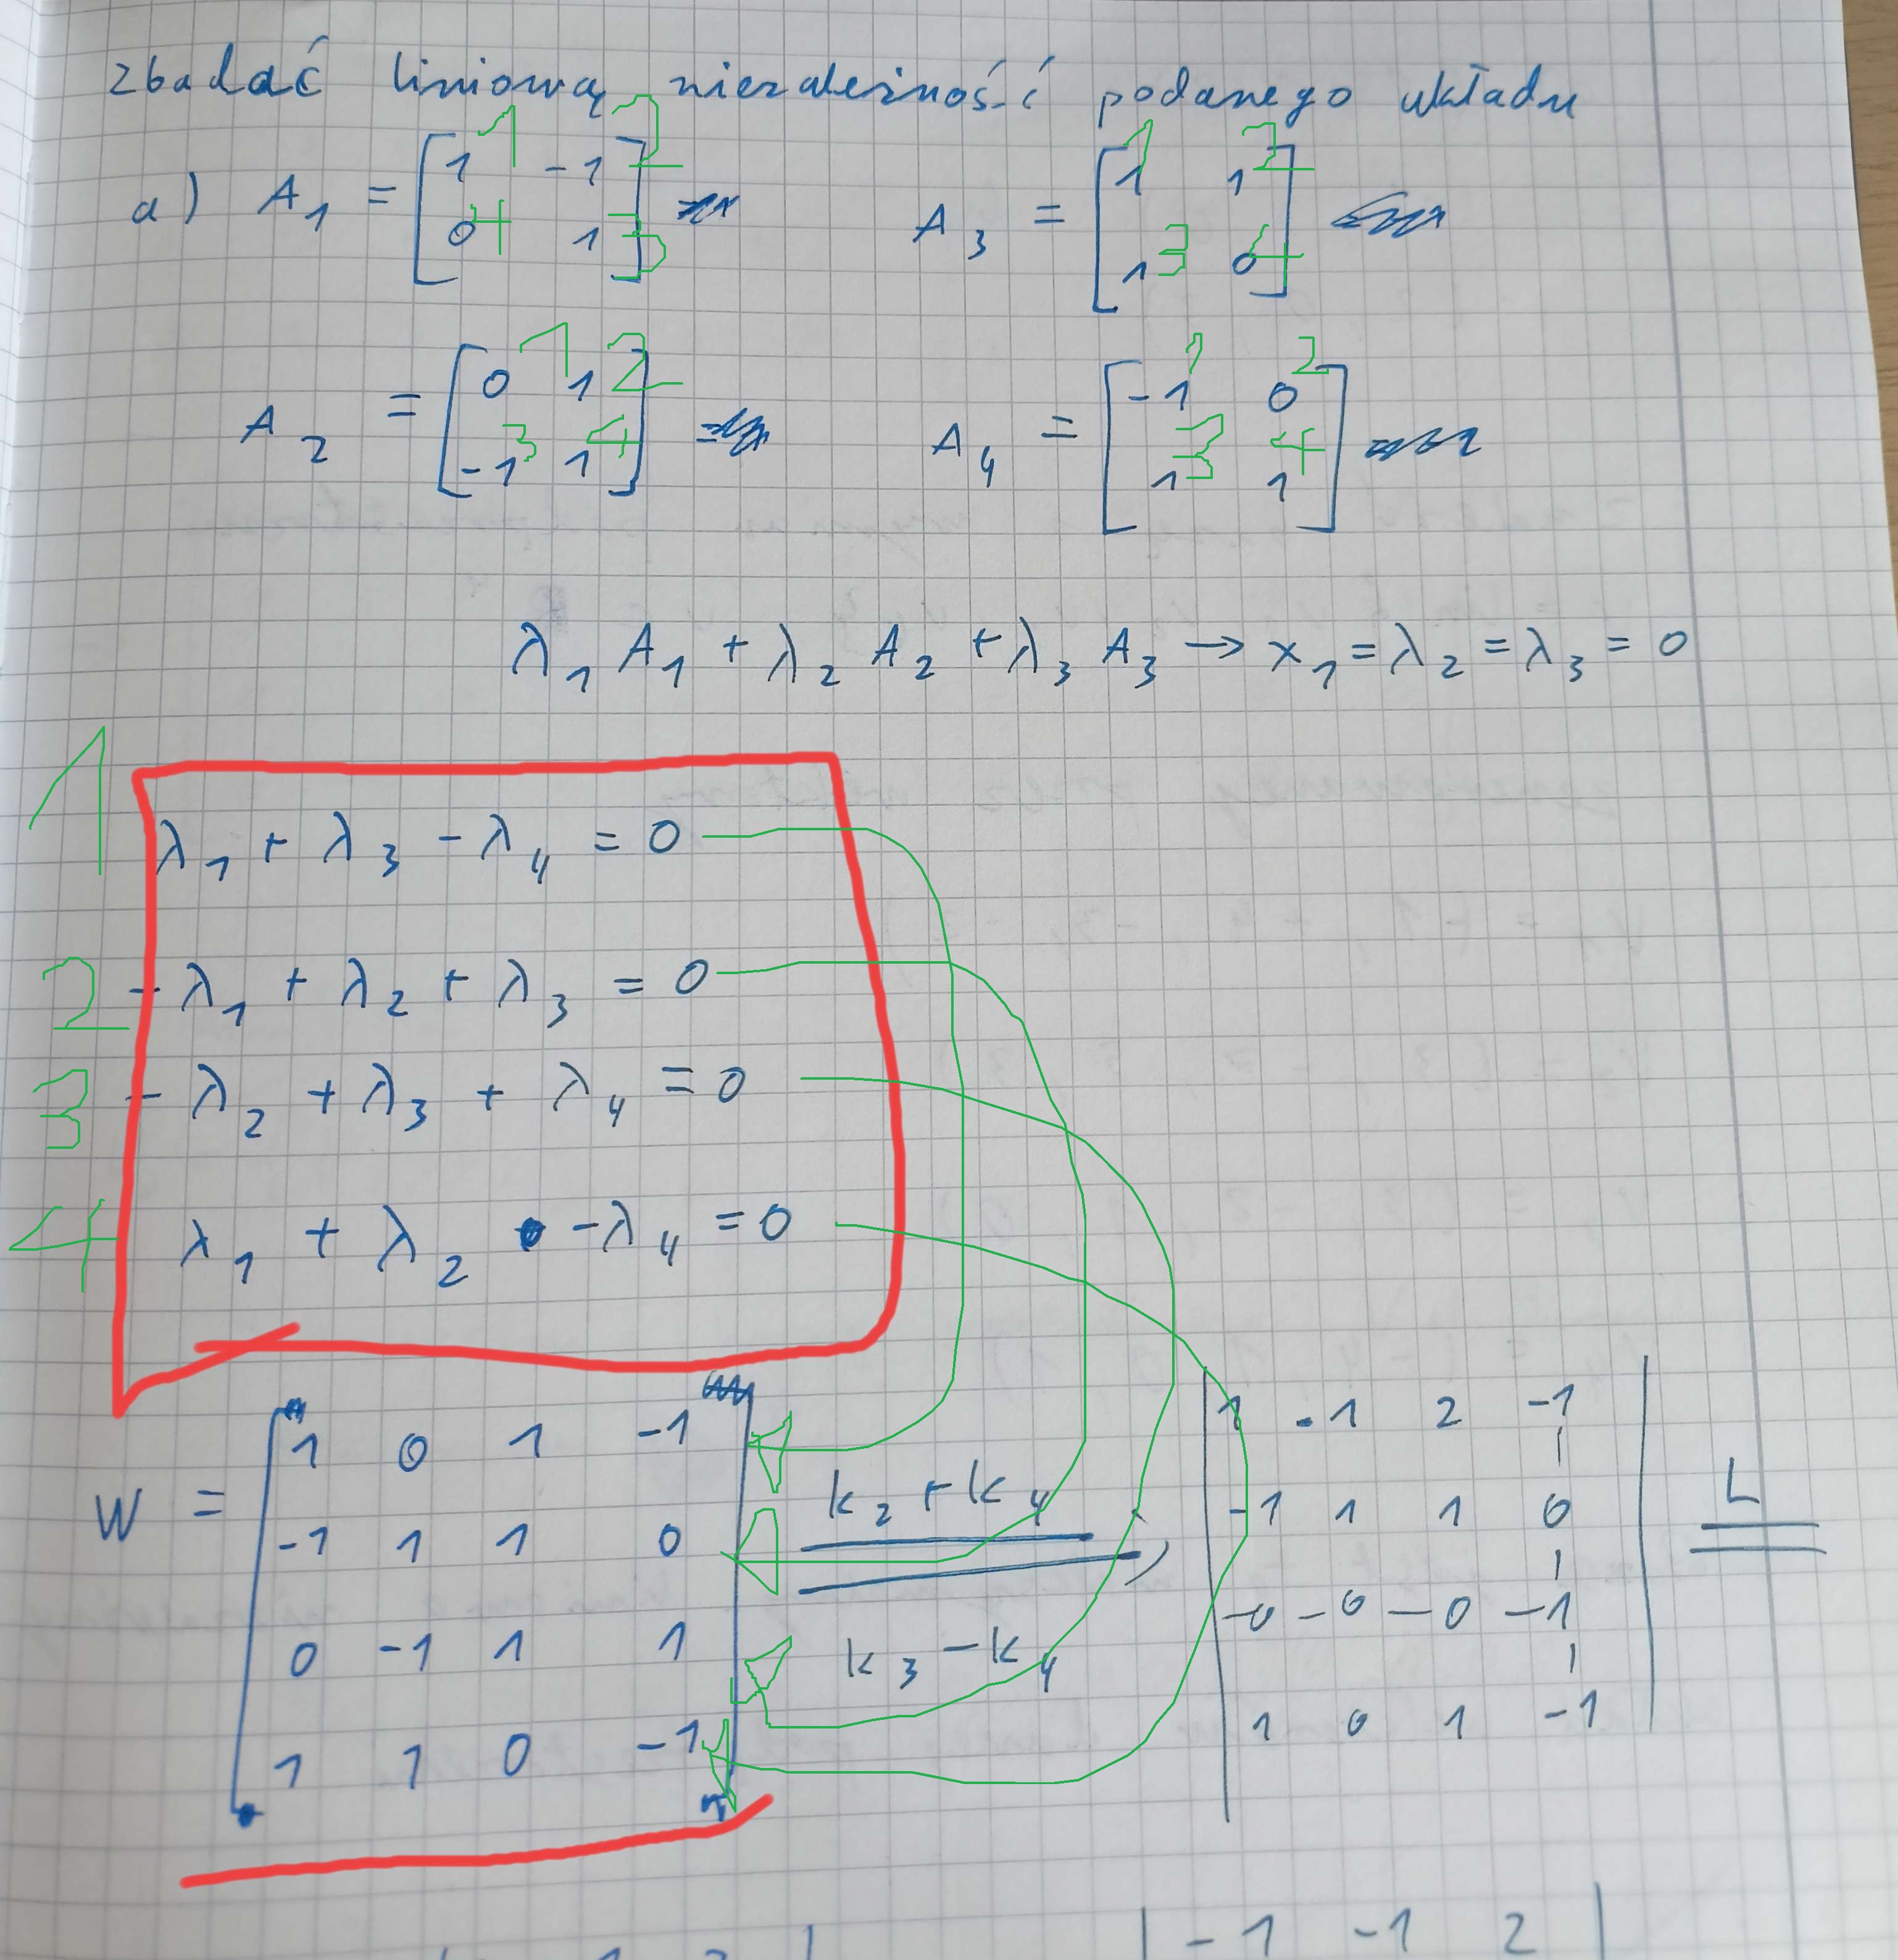 zbadać liniową niezależność podanego układu
a) A₁ = [1 -1; 0 1] A₃ = [1 1; 1 0]
1 2 4 3 1 2 3 4
A₂ = [0 1; -1 1] A₄ = [-1 0; 1 1]
1 2 3 4 1 2 3 4
λ₁ A₁ + λ₂ A₂ + λ₃ A₃ → x₁ = λ₂ = λ₃ = 0
1 λ₁ + λ₃ - λ₄ = 0
2 - λ₁ + λ₂ + λ₃ = 0
3 - λ₂ + λ₃ + λ₄ = 0
4 λ₁ + λ₂ - λ₄ = 0
W =
1 0 1 -1
-1 1 1 0
0 -1 1 1
1 1 0 -1
k₂ + k₄
k₃ - k₄
1 -1 2 -1
-1 1 1 0
0 0 0 1
1 0 1 -1
L
-1 -1 2